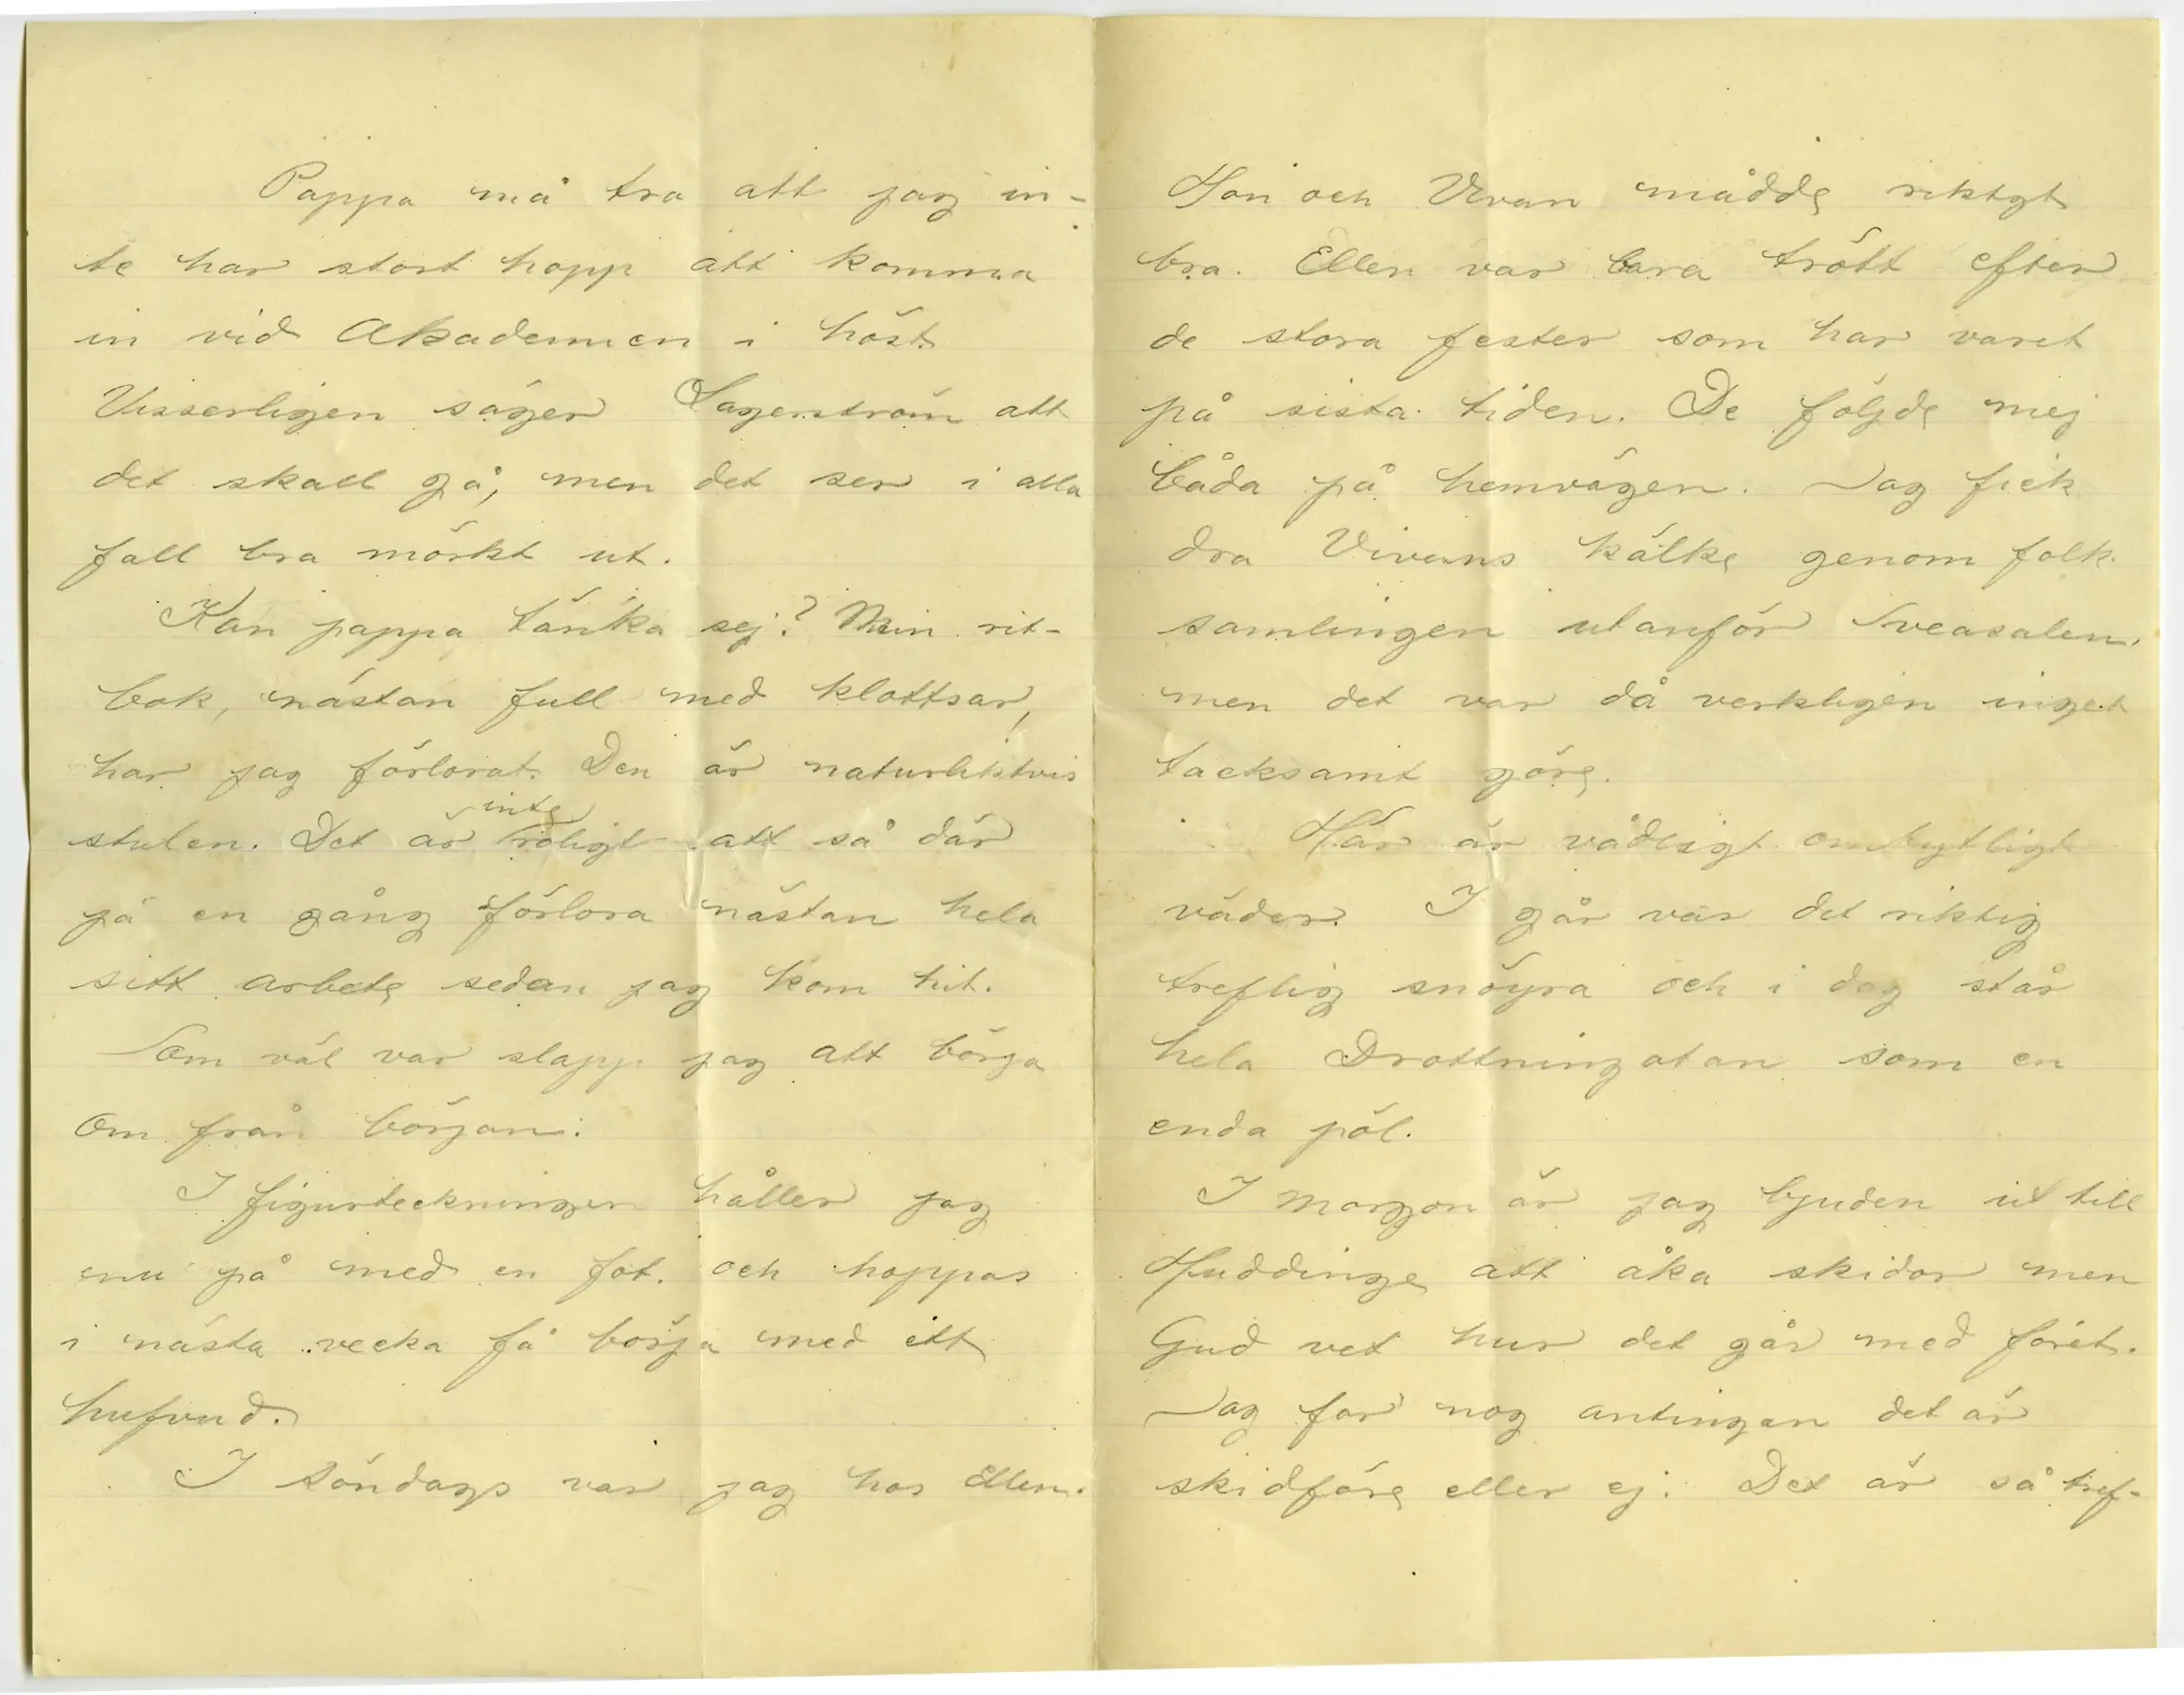 Pappa må tro att jag in-
te har stort hopp att komma
in vid Akademien i höst.
Visserligen säger Lagerström att
det skall gå, men det ser i alla
fall bra mörkt ut.
Kan pappa tänka sej? Min rit-
bok, nästan full med klottsar,
har jag förlorat. Den är naturliktvis
stulen. Det är inte roligt att så där
på en gång förlora nästan hela
sitt arbete sedan jag kom hit.
Som väl var slapp jag att börja
om från början.
I figurteckningen håller jag
nu på med en fot. och hoppas
i nästa vecka få börja med ett
hufvud.
I söndags var jag hos Ellen.
Hon och Vivan mådde riktigt
bra. Ellen var bara trött efter
de stora fester som har varit
på sista tiden. De följde mej
båda på hemvägen. Jag fick
dra Vivans kälke genom folk
samlingen utanför Sveasalen,
men det var då verkligen inget
tacksamt göre.
Här är vådligt ombytligt
väder. I går var det riktig
treflig snöyra och i dag står
hela Drottningatan som en
enda pöl.
I morgon är jag bjuden ut till
Huddinge att åka skidor men
Gud vet hur det går med föret.
Jag far nog antingen det är
skidföre eller ej. Det är så tref-